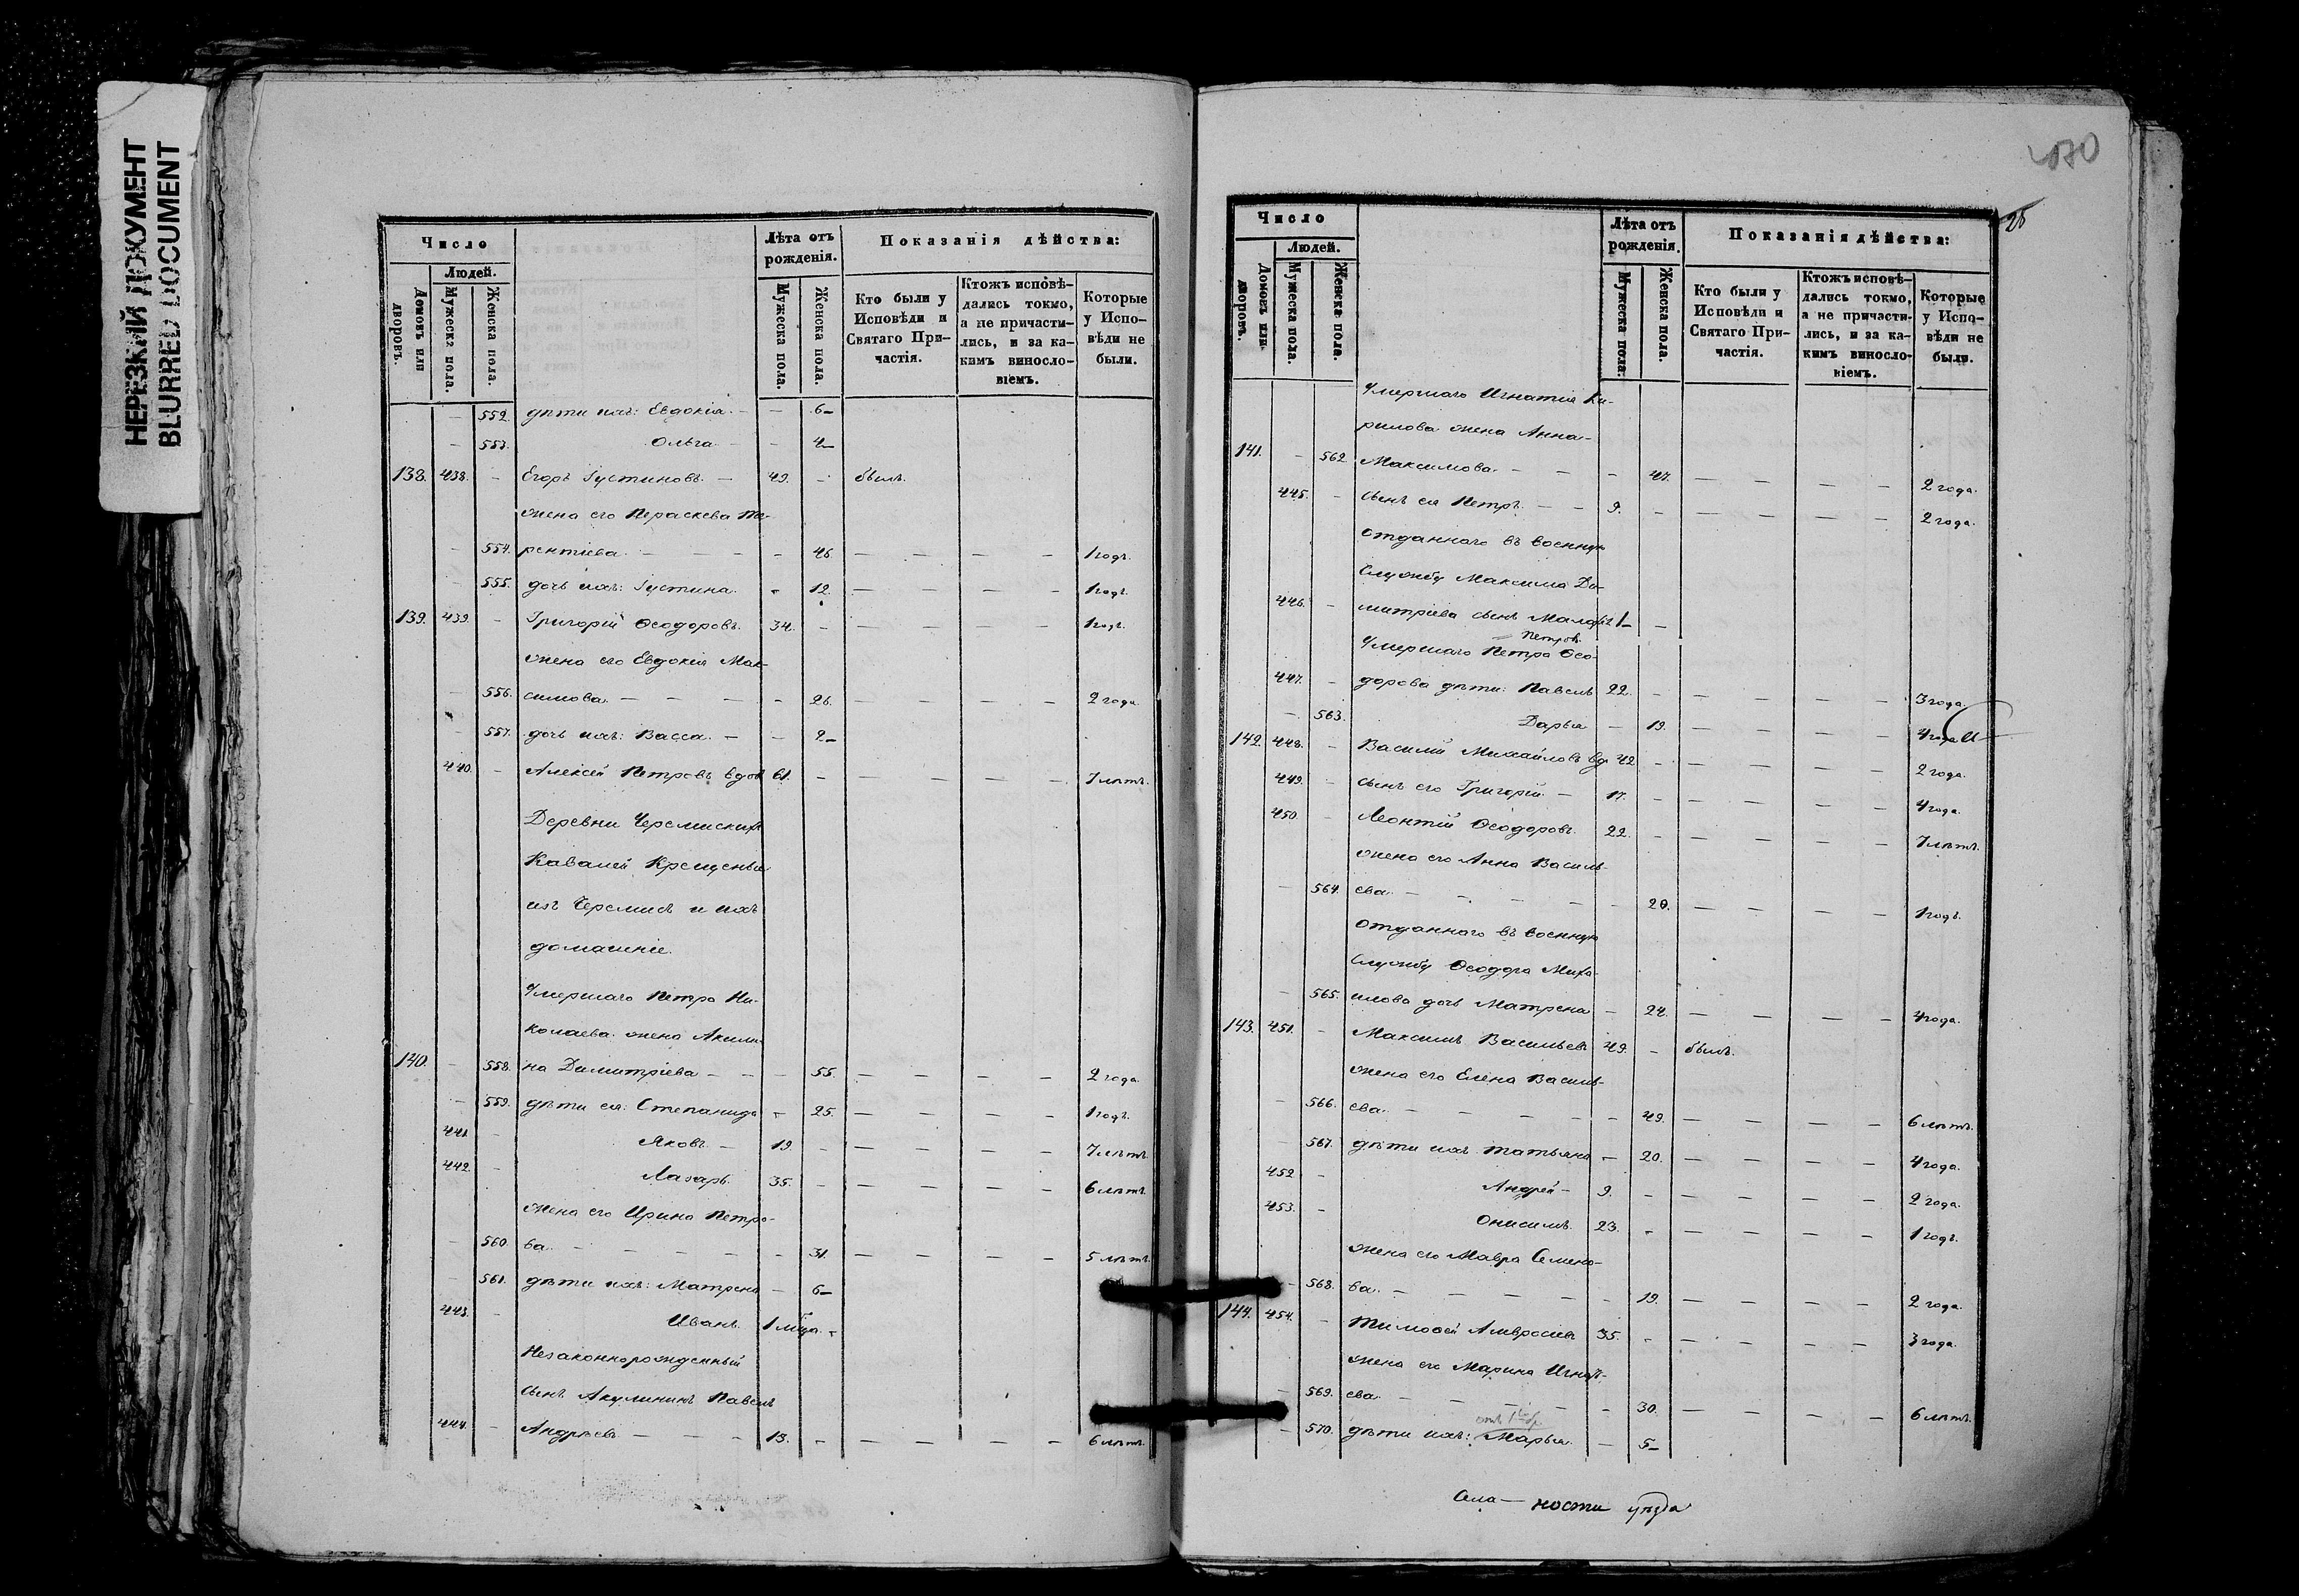 НЕРЕЗКИЙ ДОКУМЕНТ
BLURRED DOCUMENT
Число
Людей.
Домовъ или дворовъ.
Мужеска пола.
Женска пола.
Лѣта отъ рожденія.
Мужеска пола.
Женска пола.
Показанія дѣйства:
Кто были у Исповѣди и Святаго Причастія.
Ктожъ исповѣдались токмо, а не причастились, и за какимъ винословіемъ.
Которые у Исповѣди не были.
— 552. дѣти ихъ: Евдокія — — 6—
— 553. Ольга — — 4—
138. 438. — Егоръ Іустиновъ — 49. — былъ.
жена его Параскева Те-
— 554. рентіева — — — — 46 — — — — 1 годъ.
— 555. дочь ихъ: Іустина. — 12. — — — — 1 годъ.
139. 439. — Григорій Ѳеодоровъ. 34. — — — — — 1 годъ.
жена его Евдокія Мак-
— 556. симова — — — — 26. — — — — 2 года.
— 557. дочь ихъ: Васса. — — 2—
440. — Алексей Петровъ вдов 61. — — — — — 7 лѣтъ.
Деревни Черемискихъ
Кавалей Крещеные
изъ Черемисъ и ихъ
домашніе.
Умершаго Петра Ни-
колаева жена Акили-
140. — 558. на Димитріева — — — 55. — — — — 2 года.
— 559. дѣти ея: Степанида — 25. — — — — 1 годъ.
441. — Яковъ — 19. — — — — — 7 лѣтъ.
442. — Лазарь. 35. — — — — — 6 лѣтъ.
жена его Ирина Петро-
— 560. ва — — — — — 31. — — — — 5 лѣтъ.
— 561. дѣти ихъ: Матрена — 6—
443. — Иванъ. 1 мѣся. —
Незаконнорожденный
сынъ Акулининъ Павелъ
444. — Андреевъ — — — 13. — — — — — 6 лѣтъ.
Число
Людей.
Домовъ или дворовъ.
Мужеска пола.
Женска пола.
Лѣта отъ рожденія.
Мужеска пола.
Женска пола.
Показанія дѣйства:
Кто были у Исповѣди и Святаго Причастія.
Ктожъ исповѣдались токмо, а не причастились, и за какимъ винословіемъ.
Которые у Исповѣди не были.
Умершаго Игнатія Ки-
рилова жена Анна
141. — 562. Максимова. — — — 47. — — — — 2 года.
445. — сынъ ея Петръ — — 9. — — — — — 2 года.
отданнаго въ военную
службу Максима Ди-
446. — митріева сынъ 1— —
Петровъ
Умершаго Петра Ѳео-
447. — дорова дѣти: Павелъ 22. — — — — — 3 года.
— 563. Дарья — 19. — — — — 4 года
142. 448. — Василій Михайловъ вд. 42 — — — — — 2 года.
449. — сынъ его Григорій — 17. — — — — — 4 года.
450. — Леонтій Ѳеодоровъ. 22. — — — — — 7 лѣтъ.
жена его Анна Василь-
— 564. ева — — — — — 20. — — — — 1 годъ.
отданнаго въ военную
службу Ѳеодора Миха-
— 565. илова дочь Матрена — 24. — — — — 4 года.
143. 451. — Максимъ Васильевъ 49. — былъ.
жена его Елена Василь-
— 566. ева — — — — — 49. — — — — 6 лѣтъ.
— 567. дѣти ихъ Татьяна — 20. — — — — 4 года.
452 — Андрей — 9. — — — — — 2 года.
453. — Онисимъ. 23. — — — — — 1 годъ.
жена его Мавра Семено-
— 568. ва. — — — — — 19. — — — — 2 года.
144. 454. — Тимоѳей Амвросіевъ 35. — — — — — 3 года.
жена его Марина Игнать-
— 569. ева — — — — — 30. — — — — 6 лѣтъ.
— 570. дѣти ихъ: Марья. — 5—
ности уѣзда